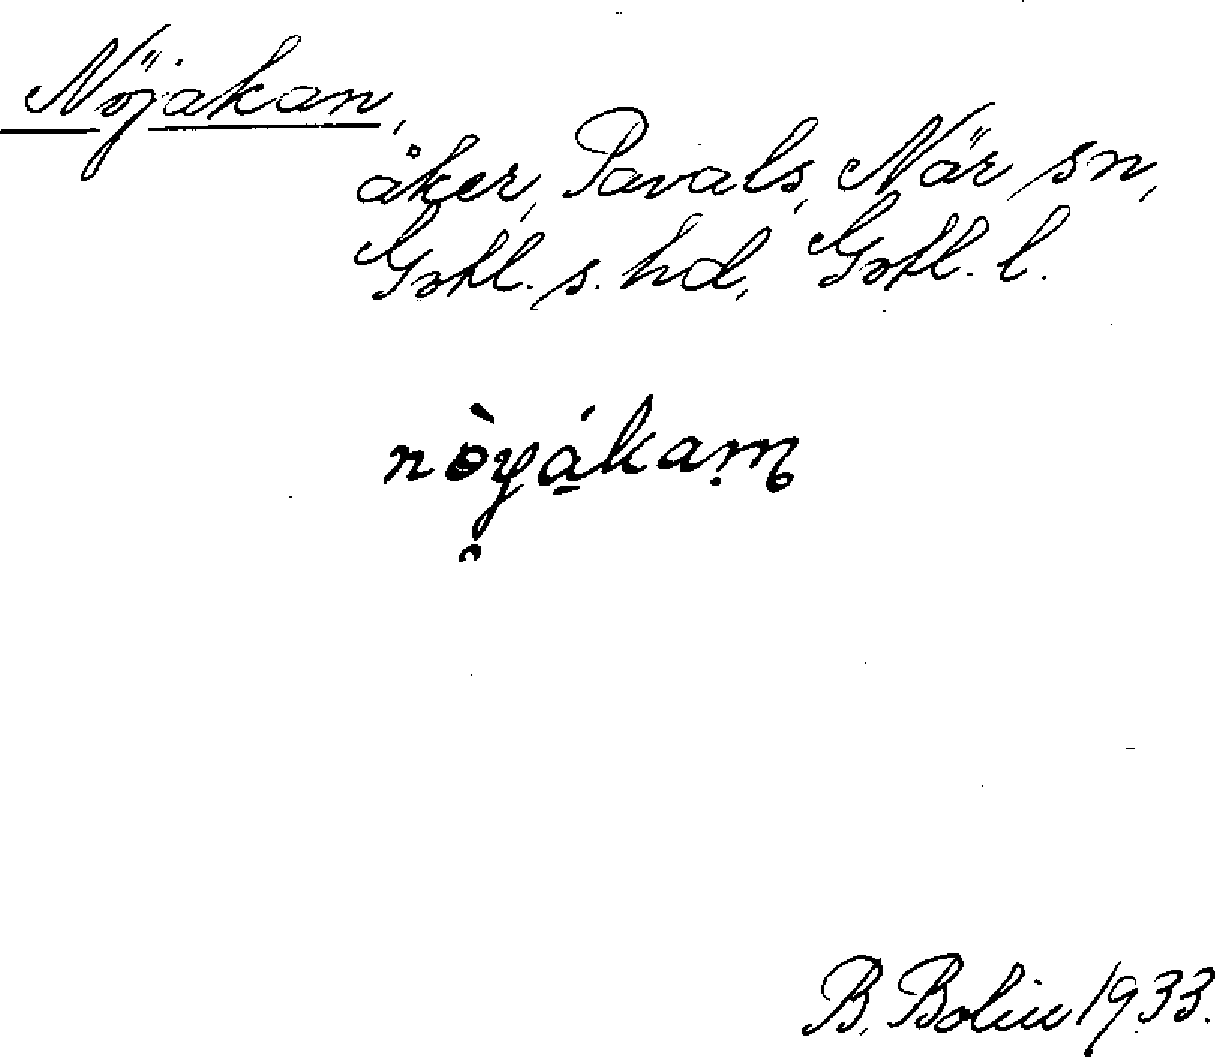 Nöjakan,
åker, Pavals, När sn,
Gotl. s. hd, Gotl. l.
B. Bolin 1933.